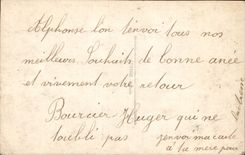 Alphonse l'on t'envoi tous nos
meilleurs Souhaits de bonne anée
et vivement votre retour
Bourcier Huger qui ne
t'oublie pas
j'envoi ma carte
à ta mère pour